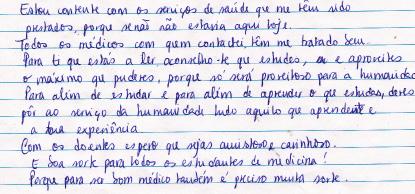 Estou contente com os serviços de saúde que me têm sido
prestados, porque senão não estaria aqui hoje.
Todos os médicos com quem contactei, têm me tratado bem.
Para ti que estás a ler aconselho-te que estudes, e aproveites
o máximo que puderes, porque só será proveitoso para a humanidade
Para além de estudar e para além de aprender o que estudas, deves
pôr ao serviço da humanidade tudo aquilo que aprendeste e
a tua experiência.
Com os doentes espero que sejas amistoso e carinhoso.
E boa sorte para todos os estudantes de medicina!
Porque para ser bom médico também é preciso muita sorte.